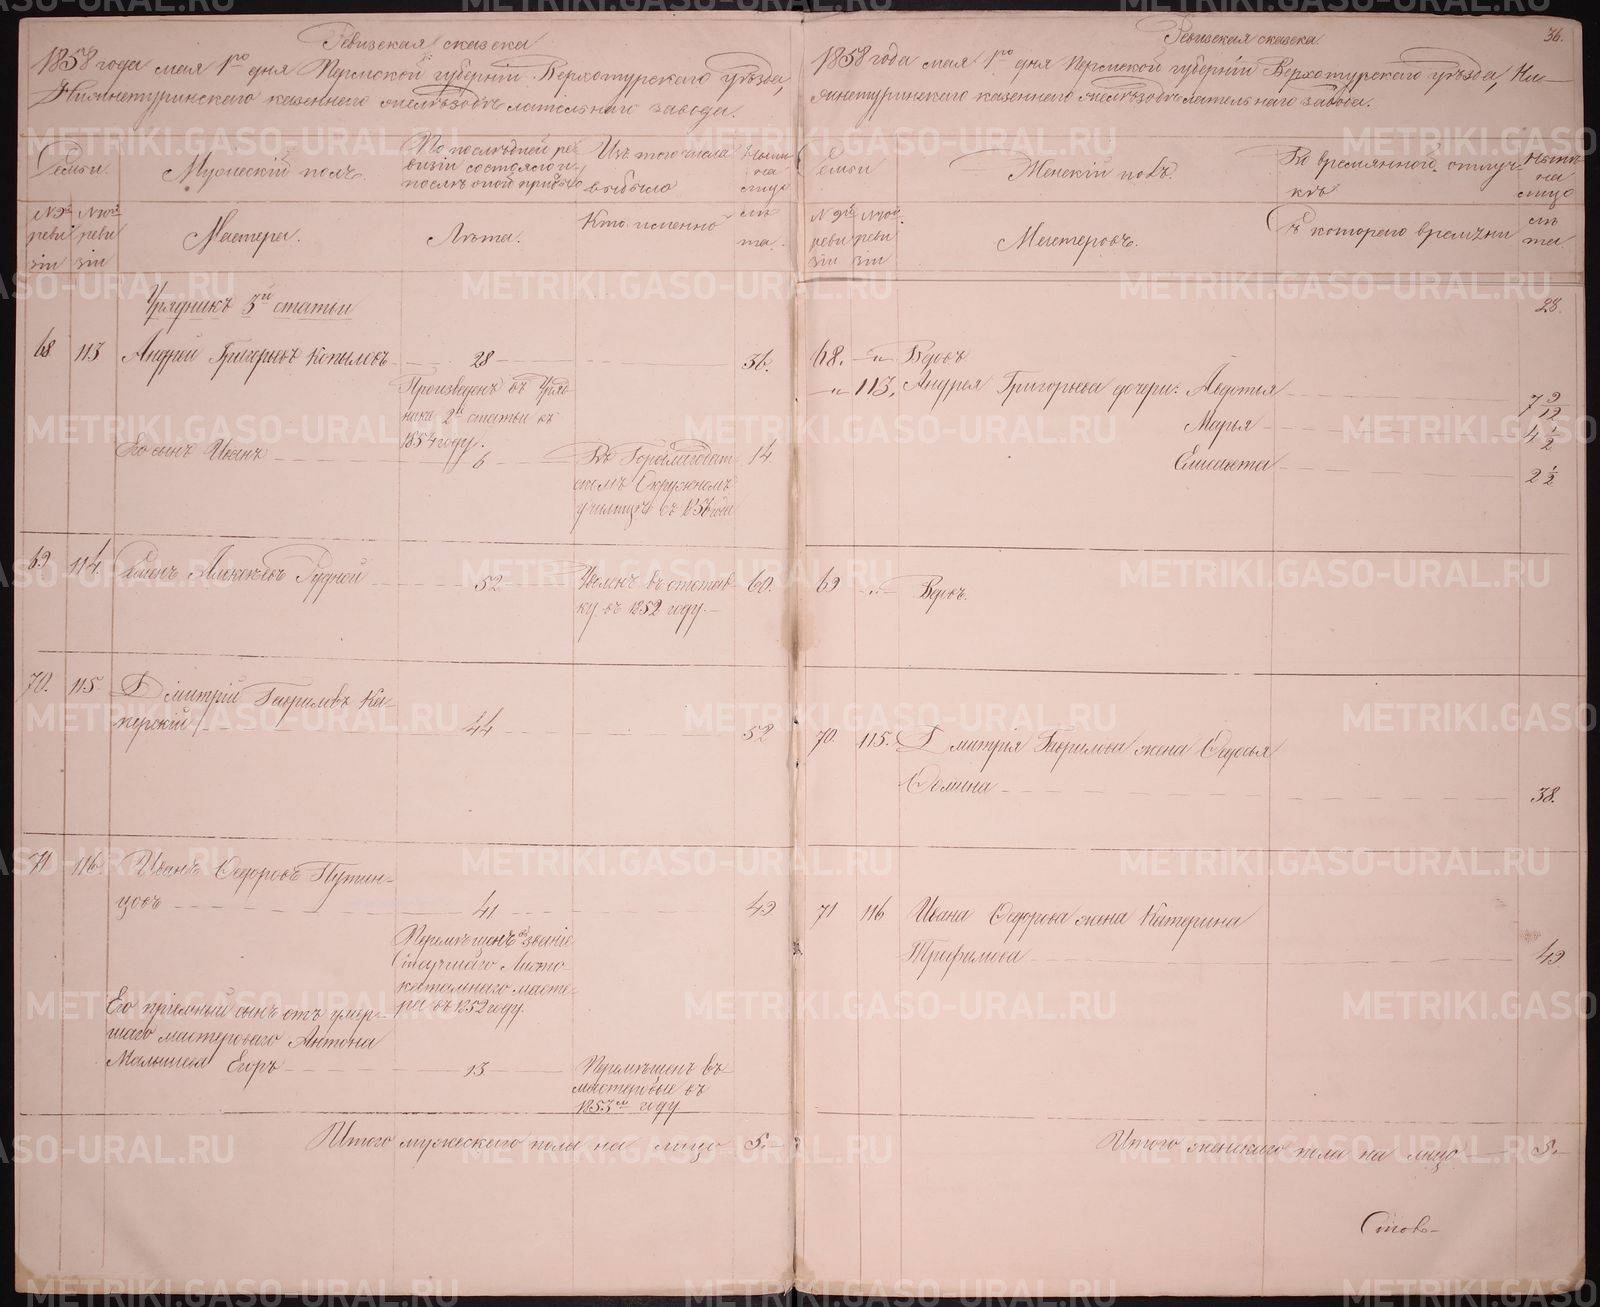 Ревизская сказка
1858 года мая 1го дня Пермской губерніи Верхотурскаго уѣзда,
Нижнетуринскаго казеннаго желѣзодѣлательнаго завода.
Семьи. Мужескій полъ. По послѣдней ре-
визіи состояло и
послѣ оной прибыло Изъ того числа
выбыло Нынѣ
на
лицо
№ 9й
реви
зіи № 10й
реви
зіи Мастера. Лѣта. Кто именно лѣ
та.
Урядникъ 3й статьи
68 113 Андрей Григорьевъ Копыловъ 28 36.
Произведенъ въ Уряд-
ника 2й статьи въ
1854 году.
Его сынъ Иванъ 6 Въ Гороблагодат
скомъ Окружномъ
училищѣ съ 1856 года 14
69 114. Семенъ Алексѣевъ Рудной 52 Уволенъ въ отстав
ку въ 1852 году. 60.
70. 115 Дмитрій Гавриловъ Ка-
перскій 44 52
71 116 Иванъ Ѳедоровъ Путин-
цовъ 41 49
Перемѣщенъ въ званіе
мастера въ 1852 году.
Его пріемный сынъ отъ умер-
шаго мастероваго Антона
Малышева Егоръ 13 Перемѣщенъ въ
мастеровые въ
1853м году
Итого мужескаго пола на лицо 5.
36.
Ревизская сказка
1858 года мая 1го дня Пермской губерніи Верхотурскаго уѣзда, Ни-
жнетуринскаго казеннаго желѣзодѣлательнаго завода.
Семьи Женскій полъ. Во временной отлуч-
кѣ Нынѣ
на
лицо
№ 9й
реви
зіи № 10й
реви
зіи Мастеровъ. Съ котораго времени лѣ
та
28.
68. " Вдовъ
" 113, Андрея Григорьева дочери: Авдотья 7 9/12
Марья 4 1/2
Елисавета 2 1/2
69 " Вдовъ.
70. 115. Дмитрія Гаврилова жена Ѳедосья
Ѳомина 38.
71 116 Ивана Ѳедорова жена Катерина
Трифимова 49
Итого женскаго пола на лицо 5.
METRIKI.GASO-URAL.RU